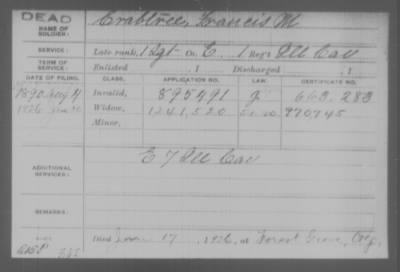 DEAD
NAME OF SOLDIER: Crabtree, Francis M.
SERVICE: Late rank, 1 Sgt Co. E, 1 Reg't Ill Cav
TERM OF SERVICE: Enlisted , 1 Discharged , 1
DATE OF FILING. CLASS. APPLICATION NO. LAW. CERTIFICATE NO.
1890 Aug 4 Invalid, 895491 g 663,283
1926 Widow, 1241,520 970,745
Minor,
ADDITIONAL SERVICES: E 7 Ill Cav
REMARKS:
Died June 17, 1926, at Forest Grove, Oreg.